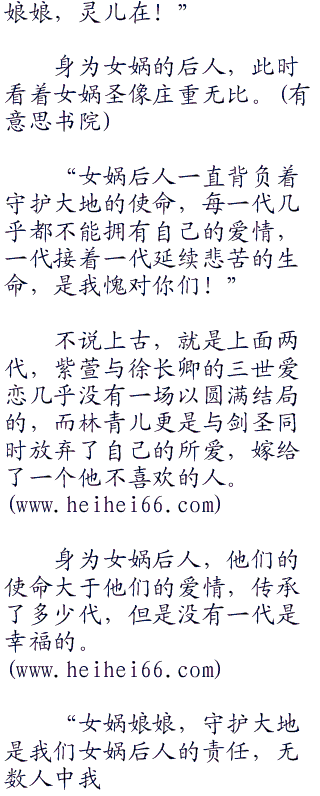 娘娘，灵儿在！”
身为女娲的后人，此时
看着女娲圣像庄重无比。(有
意思书院)
“女娲后人一直背负着
守护大地的使命，每一代几
乎都不能拥有自己的爱情，
一代接着一代延续悲苦的生
命，是我愧对你们！”
不说上古，就是上面两
代，紫萱与徐长卿的三世爱
恋几乎没有一场以圆满结局
的，而林青儿更是与剑圣同
时放弃了自己的所爱，嫁给
了一个他不喜欢的人。
(www.heihei66.com)
身为女娲后人，他们的
使命大于他们的爱情，传承
了多少代，但是没有一代是
幸福的。
(www.heihei66.com)
“女娲娘娘，守护大地
是我们女娲后人的责任，无
数人中我